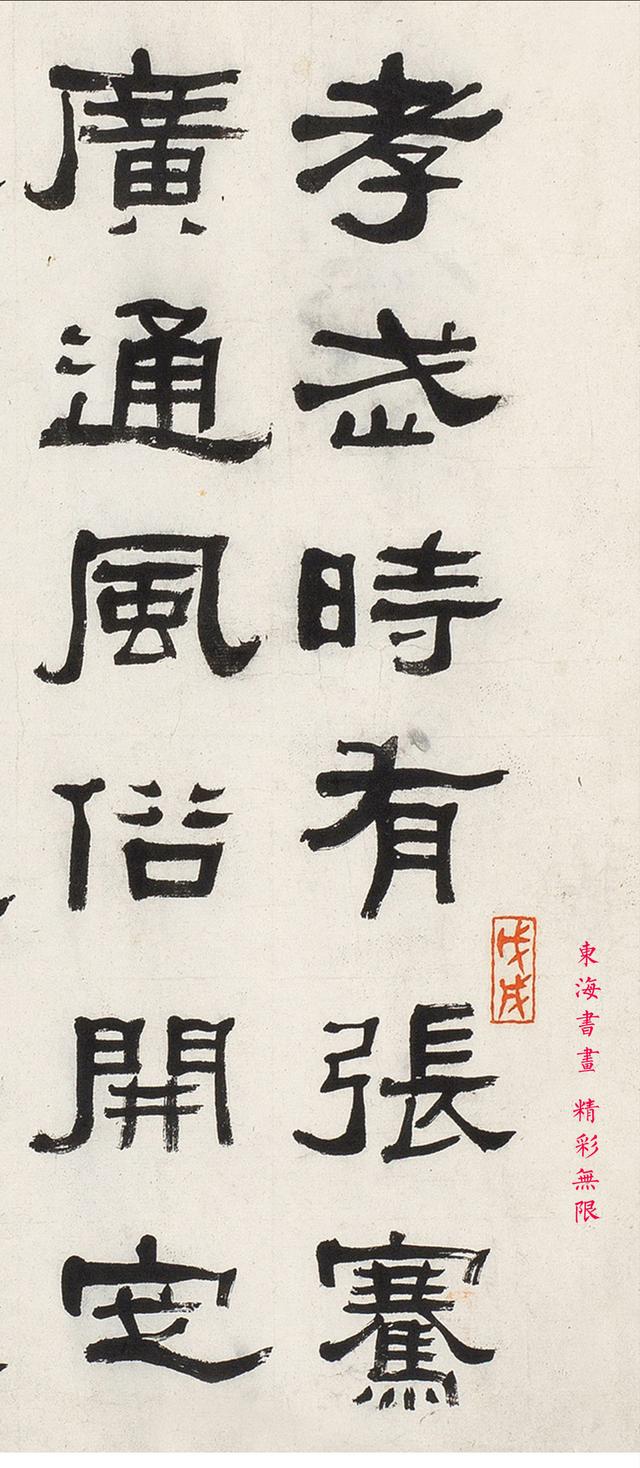 孝武時有張騫
廣通風俗開定
戊戌
東海書畫 精彩無限